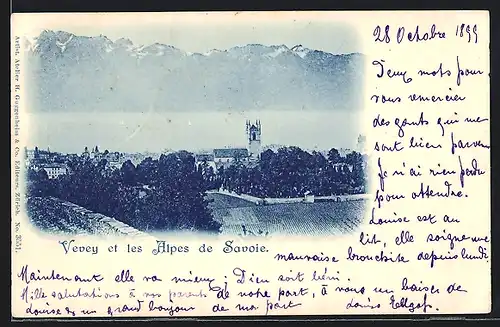 28 Octobre 1899
Deux mots pour
vous remercier
des gants qui me
sont bien parven
Je n'ai rien perdu
pour attendre.
Louise est au
lit, elle soigne une
mauvaise bronchite depuis lundi.
Maintenant elle va mieux, Dieu soit béni.
Mille salutations à vos parents de notre part, à vous un baiser de
Louise & un grand bonjour de ma part Louis
Vevey et les Alpes de Savoie.
Artist. Atelier H. Guggenheim & Co., Editeurs, Zürich. No. 3551.